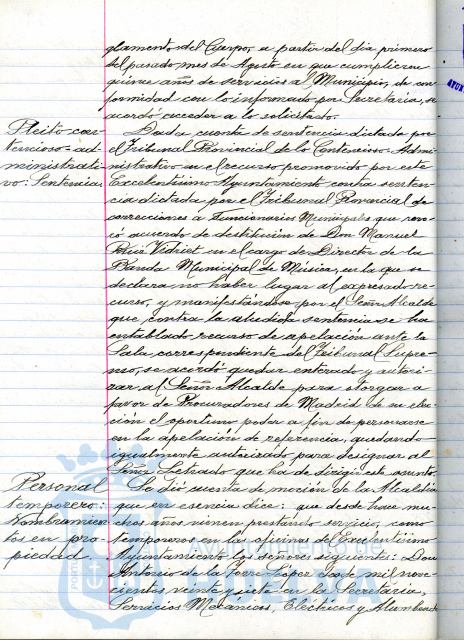 glamento del Cuerpo, a partir del dia primero
del pasado mes de Agosto en que cumplieron
quince años de servicios al Municipio, de con-
formidad con lo informado por Secretaria, se
acordó acceder a lo solicitado.
Pleito con-
tencioso-ad-
ministrati-
vo: Sentencias
Dada cuenta de sentencia dictada por
el Tribunal Provincial de lo Contencioso-Admi-
nistrativo en el recurso promovido por este
Excelentísimo Ayuntamiento contra senten-
cia dictada por el Tribunal Provincial de
correcciones a Funcionarios Municipales que revo-
có acuerdo de destitución de Don Manuel
Ruiz Vidriet en el cargo de Director de la
Banda Municipal de Música, en la que se
declara no haber lugar al expresado re-
curso, y manifestándose por el Señor Alcalde
que contra la aludida sentencia se ha
entablado recurso de apelación ante la
Sala correspondiente del Tribunal Supre-
mo, se acordó quedar enterado y autori-
zar al Señor Alcalde para otorgar a
favor de Procuradores de Madrid de su elec-
ción el oportuno poder a fin de personarse
en la apelación de referencia, quedando
igualmente autorizado para designar al
Señor Letrado que ha de dirigir este asunto.
Personal
temporero:
Nombramien-
tos en pro-
piedad.
Se dió cuenta de moción de la Alcaldia
que en esencia dice: que desde hace mu-
chos años vienen prestando servicio, como
temporeros en las oficinas del Excelentísimo
Ayuntamiento los señores siguientes: Don
Antonio de la Torre López desde mil nove-
cientos veinte y siete en la Secretaria,
Servicios Mecánicos, Eléctricos y Alumbrado